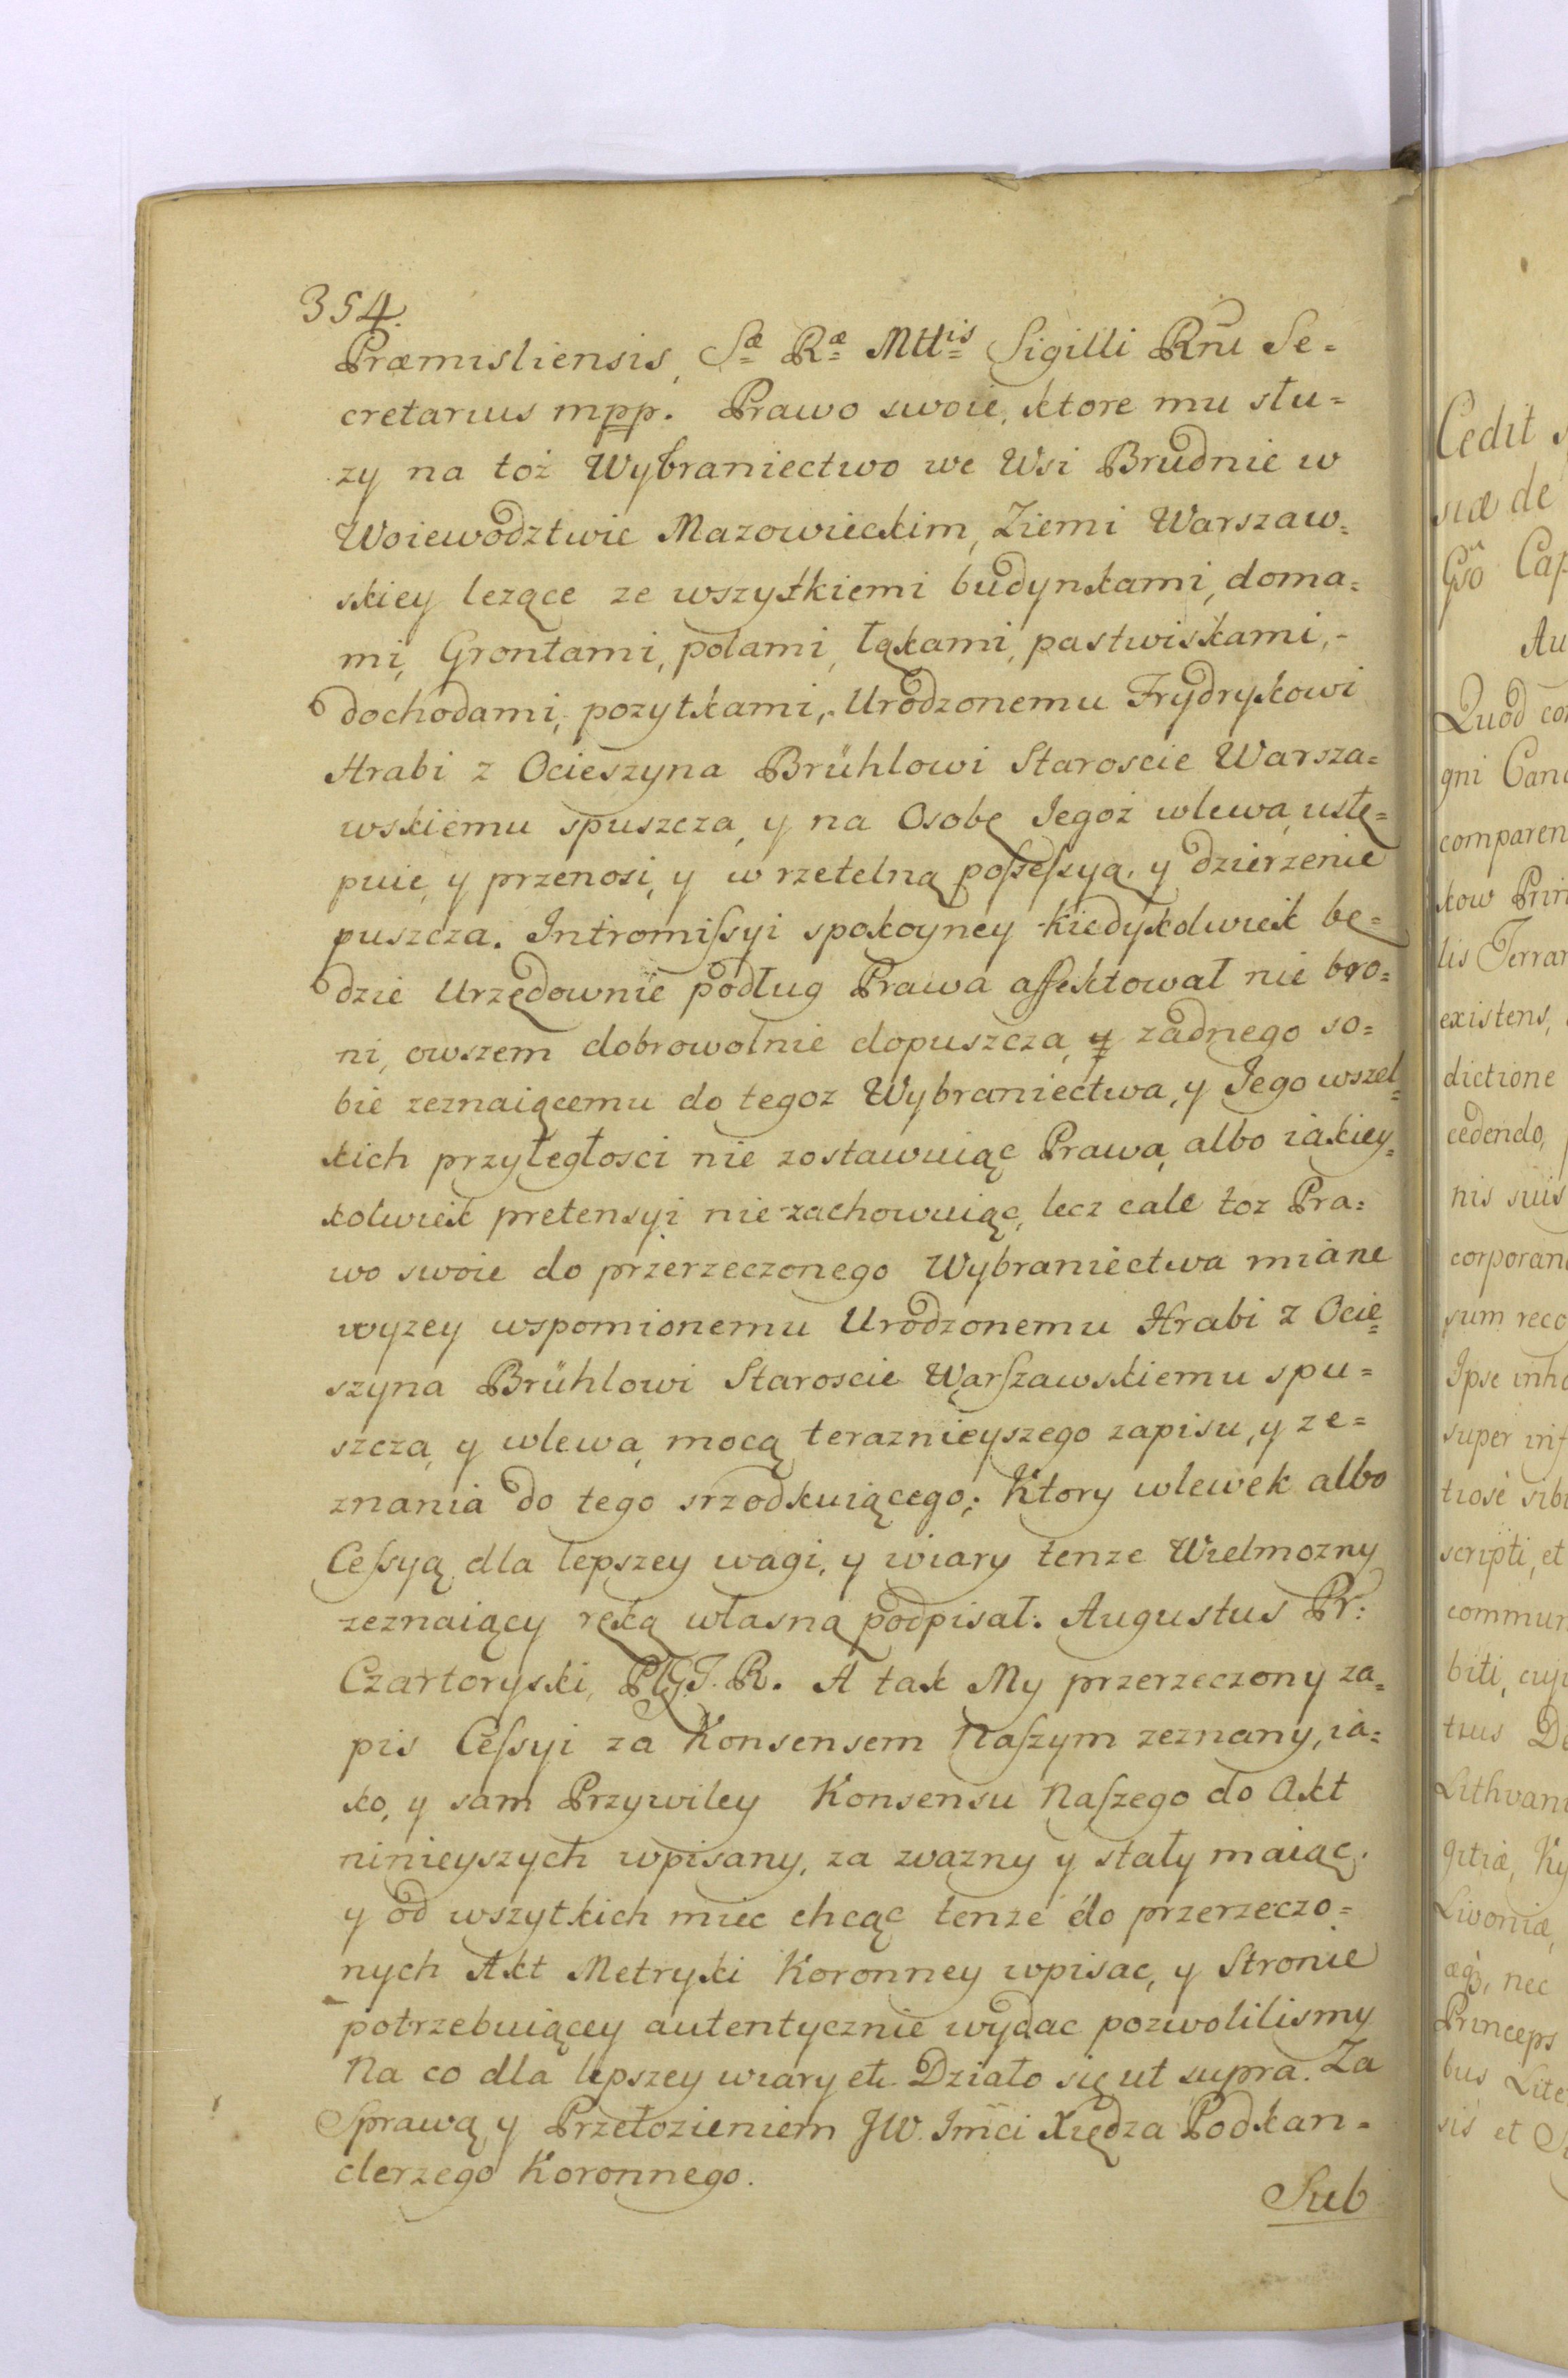 354.
Præmisliensis, Sæ Ræ Mttis Sigilli Rni Se=
cretarius mpp. Prawo swoie, ktore mu słu=
zy na toż Wybraniectwo we Wsi Brudnie w
Woiewodztwie Mazowieckim, Ziemi Warszaw=
skiey lezące ze wszytkiemi budynkami, doma=
mi, Grontami, polami, łąkami, pastwiskami,-
dochodami, pozytkami, Urodzonemu Frydrykowi
Hrabi z Ocieszyna Brühlowi Staroscie Warsza=
wskiemu spuszcza, y na Osobę Jegoż wlewa, ustę=
puie, y przenosi, y w rzetelną poſseſsyą, y dzierzenie
puszcza. Intromiſsyi spokoyney kiedykolwiek bę=
dzie Urzędownie podług Prawa affektował nie bro=
ni, owszem dobrowolnie dopuszcza, y zadnego so=
bie zeznaiącemu do tegoz Wybraniectwa, y Jego wszel=
kich przyległosci nie zostawuiąc Prawa, albo iakiey=
kolwiek pretensyi nie zachowuiąc, lecz cale toz Pra=
wo swoie do przerzeczonego Wybraniectwa miane
wyzey wspomionemu Urodzonemu Hrabi z Ocie=
szyna Brühlowi Staroscie Warſzawskiemu spu=
szcza, y wlewa, mocą teraznieyszego zapisu, y ze=
znania do tego srzodkuiącego; Ktory wlewek albo
Ceſsyą dla lepszey wagi, y wiary tenze Wielmozny
zeznaiący ręką własną podpisał. Augustus Pr:
Czartoryski, P.G.T.R. A tak My przerzeczony za=
pis Ceſsyi za Konsensem Naſzym zeznany, ia=
ko, y sam Przywiley Konsensu Naſzego do Akt
ninieyszych wpisany, za zwazny y stały maiąc.
y od wszytkich miec chcąc tenze do przerzeczo=
nych Akt Metryki Koronney wpisac, y Stronie
potrzebuiącey autentycznie wydac pozwolilismy
Na co dla lepszey wiary etc. Działo się ut supra. Za
Sprawą y Przełozieniem JW. Imci Xiędza Podkan=
clerzego Koronnego.
Sub
Cedit
suæ de
Gso Cap
Au
Quod
gni Canc
comparen
kow
lis Terrar
existens,
dictione
cedendo,
nis suis
corporan
sum reco
Ipse inh
super inf
tiose sibi
scripti, et
commun
biti, cuj
tius De
Lithvani
gitiæ, Ky
Livoniæ,
æq3, nec
Princeps
bus Lite
sis et